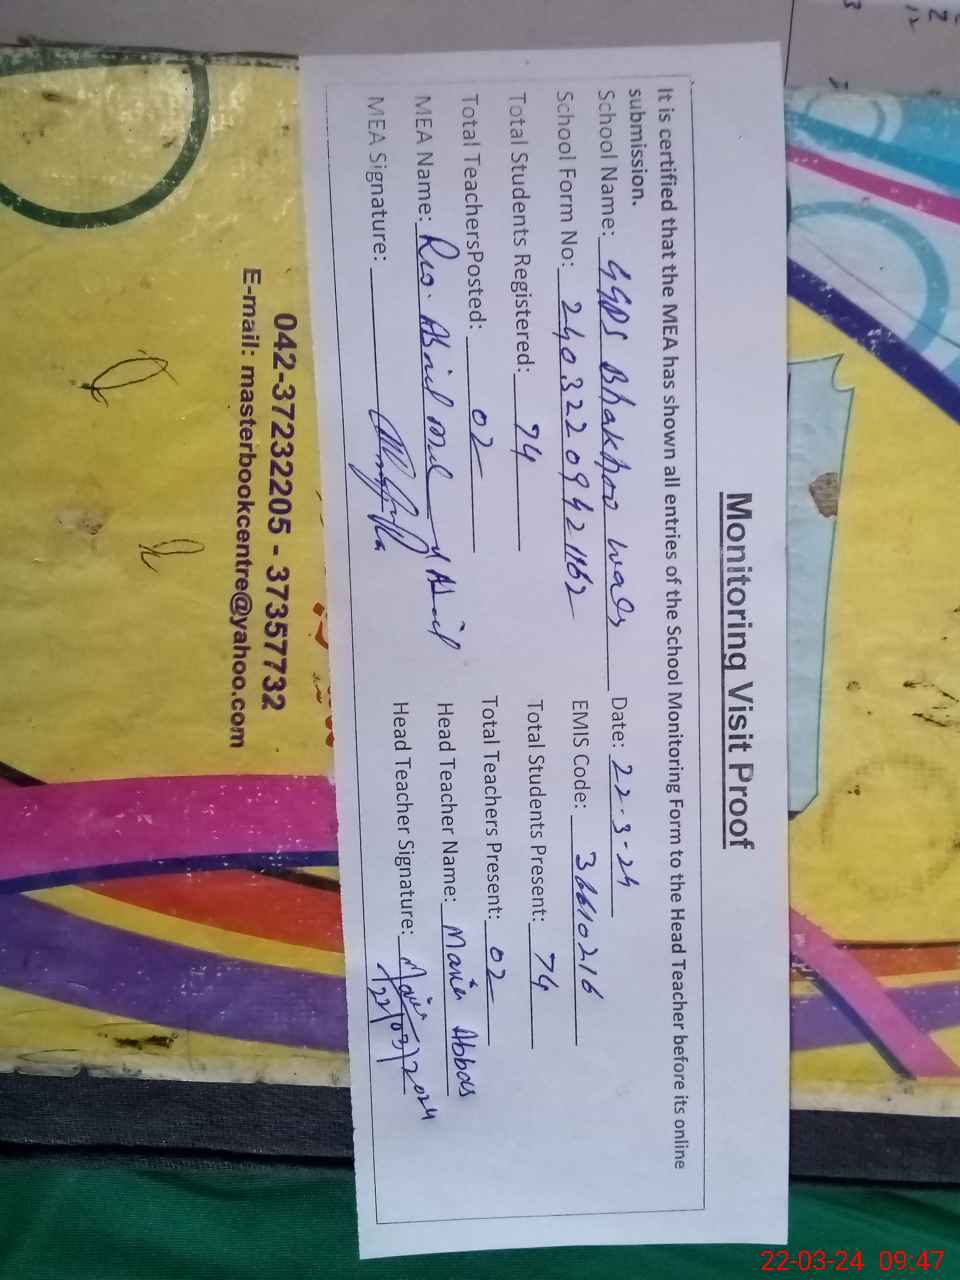 Monitoring Visit Proof
It is certified that the MEA has shown all entries of the School Monitoring Form to the Head Teacher before its online
submission.
School Name: GGPS Bhakhoo Date: 22-3-24
School Form No: 24032209421162 EMIS Code: 36610216
Total Students Registered: 74 Total Students Present: 74
Total TeachersPosted: 02 Total Teachers Present: 02
MEA Name: Head Teacher Name: Maria Abbas
MEA Signature: Head Teacher Signature: Maria
22/03/2024
042-37232205 - 37357732
E-mail: masterbookcentre@yahoo.com
22-03-24 09:47